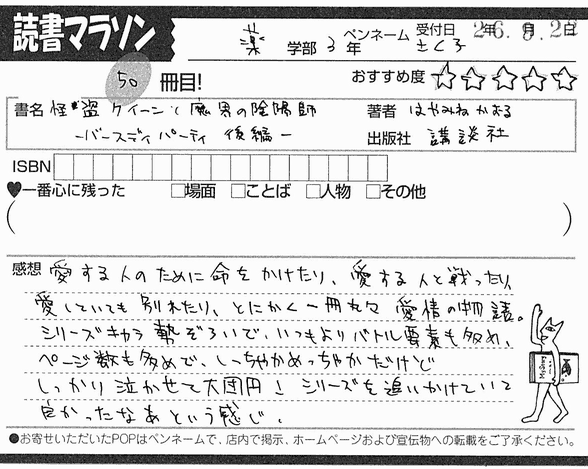 読書マラソン
薬 学部 3 年 ペンネーム さくら 受付日 26. 9. 2
50 冊目! おすすめ度 ☆☆☆☆☆
書名 怪盗クイーンと魔界の陰陽師 著者 はやみねかおる
－バースディパーティ 後編－ 出版社 講談社
ISBN
♥一番心に残った □場面 □ことば □人物 □その他
( )
感想 愛する人のために命をかけたり、愛する人と戦ったり、
愛していても別れたり、とにかく一冊丸々愛情の物語。
シリーズキャラ勢ぞろいで、いつもよりバトル要素も多め、
ページ数も多めで、しっちゃかめっちゃかだけど
しっかり泣かせて大団円! シリーズを追いかけていて
良かったなあという感じ。
●お寄せいただいたPOPはペンネームで、店内で掲示、ホームページおよび宣伝物への転載をご了承ください。